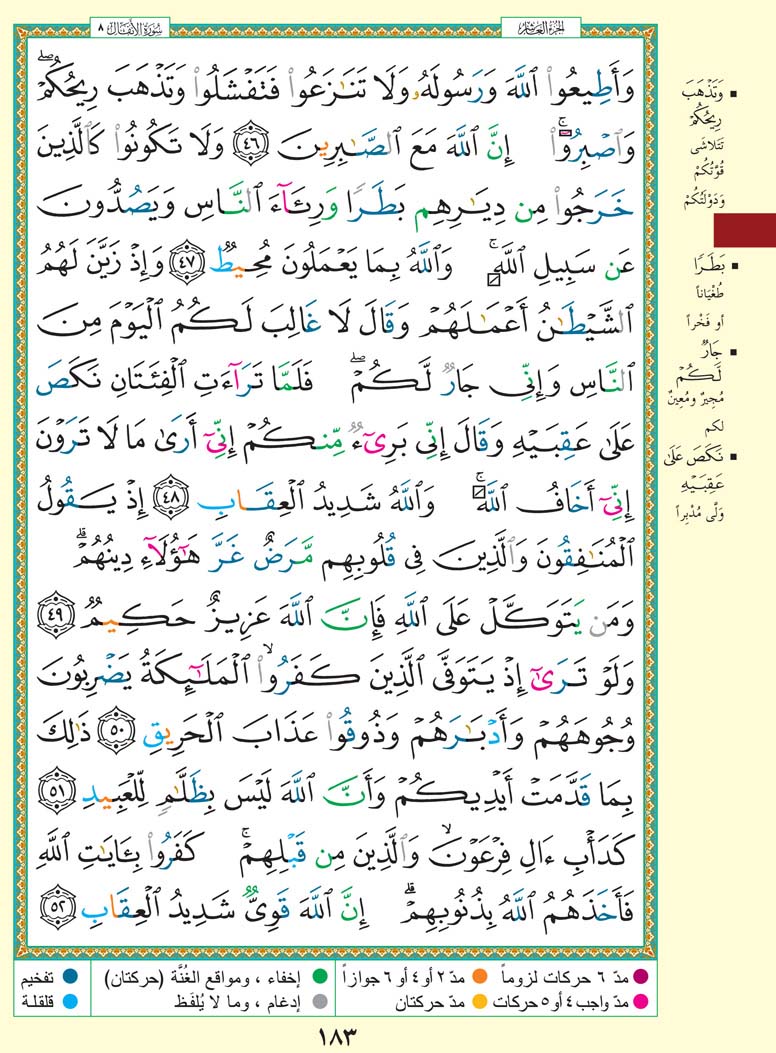 الجزء العاشر
سورة الأنفال ٨
وَأَطِيعُوا۟ ٱللَّهَ وَرَسُولَهُۥ وَلَا تَنَٰزَعُوا۟ فَتَفْشَلُوا۟ وَتَذْهَبَ رِيحُكُمْ ۖ
وَٱصْبِرُوٓا۟ ۚ إِنَّ ٱللَّهَ مَعَ ٱلصَّٰبِرِينَ ٤٦ وَلَا تَكُونُوا۟ كَٱلَّذِينَ
خَرَجُوا۟ مِن دِيَٰرِهِم بَطَرًا وَرِئَآءَ ٱلنَّاسِ وَيَصُدُّونَ
عَن سَبِيلِ ٱللَّهِ ۚ وَٱللَّهُ بِمَا يَعْمَلُونَ مُحِيطٌ ٤٧ وَإِذْ زَيَّنَ لَهُمُ
ٱلشَّيْطَٰنُ أَعْمَٰلَهُمْ وَقَالَ لَا غَالِبَ لَكُمُ ٱلْيَوْمَ مِنَ
ٱلنَّاسِ وَإِنِّى جَارٌ لَّكُمْ ۖ فَلَمَّا تَرَآءَتِ ٱلْفِئَتَانِ نَكَصَ
عَلَىٰ عَقِبَيْهِ وَقَالَ إِنِّى بَرِىٓءٌ مِّنكُمْ إِنِّىٓ أَرَىٰ مَا لَا تَرَوْنَ
إِنِّىٓ أَخَافُ ٱللَّهَ ۚ وَٱللَّهُ شَدِيدُ ٱلْعِقَابِ ٤٨ إِذْ يَقُولُ
ٱلْمُنَٰفِقُونَ وَٱلَّذِينَ فِى قُلُوبِهِم مَّرَضٌ غَرَّ هَٰٓؤُلَآءِ دِينُهُمْ ۗ
وَمَن يَتَوَكَّلْ عَلَى ٱللَّهِ فَإِنَّ ٱللَّهَ عَزِيزٌ حَكِيمٌ ٤٩
وَلَوْ تَرَىٰٓ إِذْ يَتَوَفَّى ٱلَّذِينَ كَفَرُوا۟ ۙ ٱلْمَلَٰٓئِكَةُ يَضْرِبُونَ
وُجُوهَهُمْ وَأَدْبَٰرَهُمْ وَذُوقُوا۟ عَذَابَ ٱلْحَرِيقِ ٥٠ ذَٰلِكَ
بِمَا قَدَّمَتْ أَيْدِيكُمْ وَأَنَّ ٱللَّهَ لَيْسَ بِظَلَّٰمٍ لِّلْعَبِيدِ ٥١
كَدَأْبِ ءَالِ فِرْعَوْنَ ۙ وَٱلَّذِينَ مِن قَبْلِهِمْ ۚ كَفَرُوا۟ بِـَٔايَٰتِ ٱللَّهِ
فَأَخَذَهُمُ ٱللَّهُ بِذُنُوبِهِمْ ۗ إِنَّ ٱللَّهَ قَوِىٌّ شَدِيدُ ٱلْعِقَابِ ٥٢
▪ وَتَذْهَبَ
رِيحُكُمْ
تَتَلاشَى
قُوَّتُكُمْ
وَدَوْلَتُكُمْ
▪ بَطَرًا
طُغْيَاناً
أو فَخْراً
▪ جَارٌ
لَّكُمْ
مُجِيرٌ ومُعِينٌ
لكم
▪ نَكَصَ عَلَىٰ
عَقِبَيْهِ
وَلَّى مُدْبِراً
مدّ ٦ حركات لزوماً
مدّ واجب ٤ أو ٥ حركات
مدّ ٢ أو ٤ أو ٦ جوازاً
مدّ حركتان
إخفاء ، ومواقع الغُنَّة (حركتان)
إدغام ، وما لا يُلفَظ
تفخيم
قلقلة
١٨٣